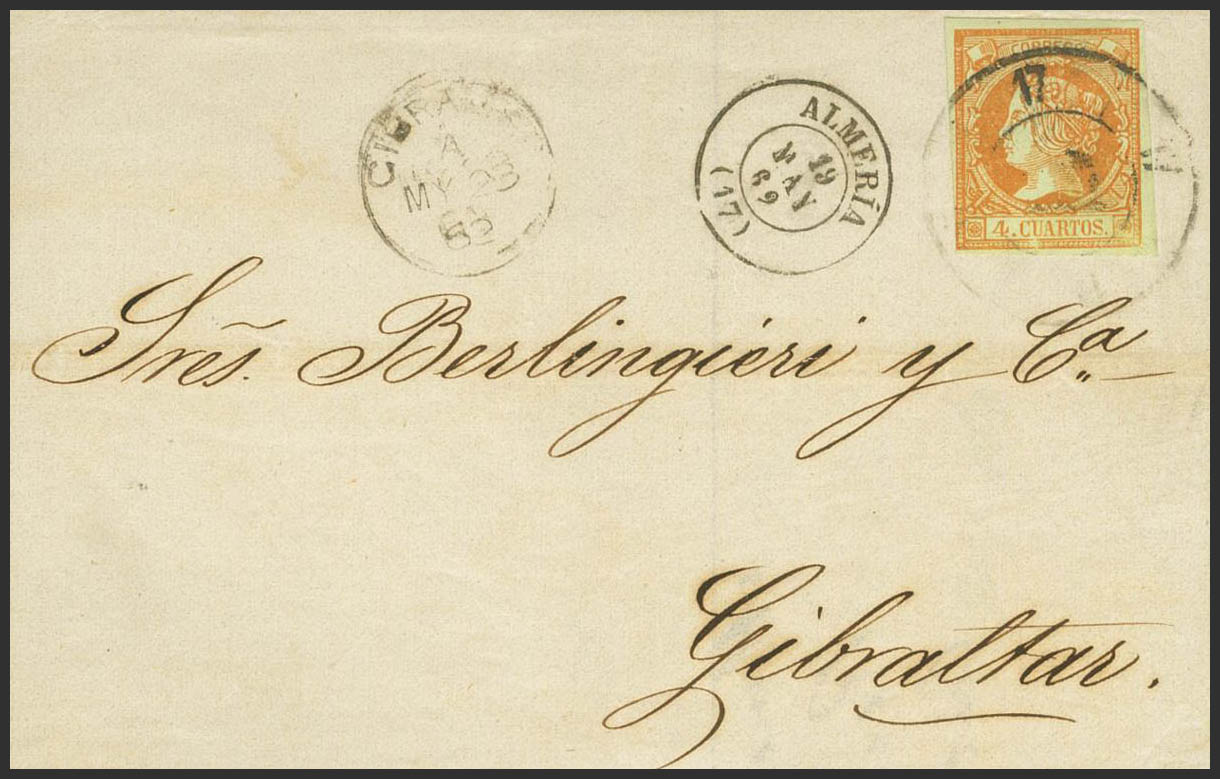 GIBRALTAR
A
MY
ALMERÍA
19
MAY
(17)
CORREOS
17
4. CUARTOS.
Sres. Berlingieri y Cª
Gibraltar.